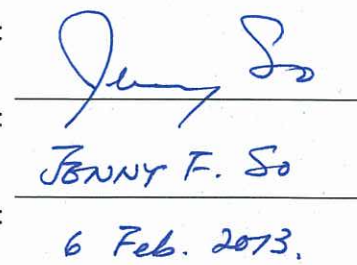 :
Jenny So
:
JENNY F. So
:
6 Feb. 2013.